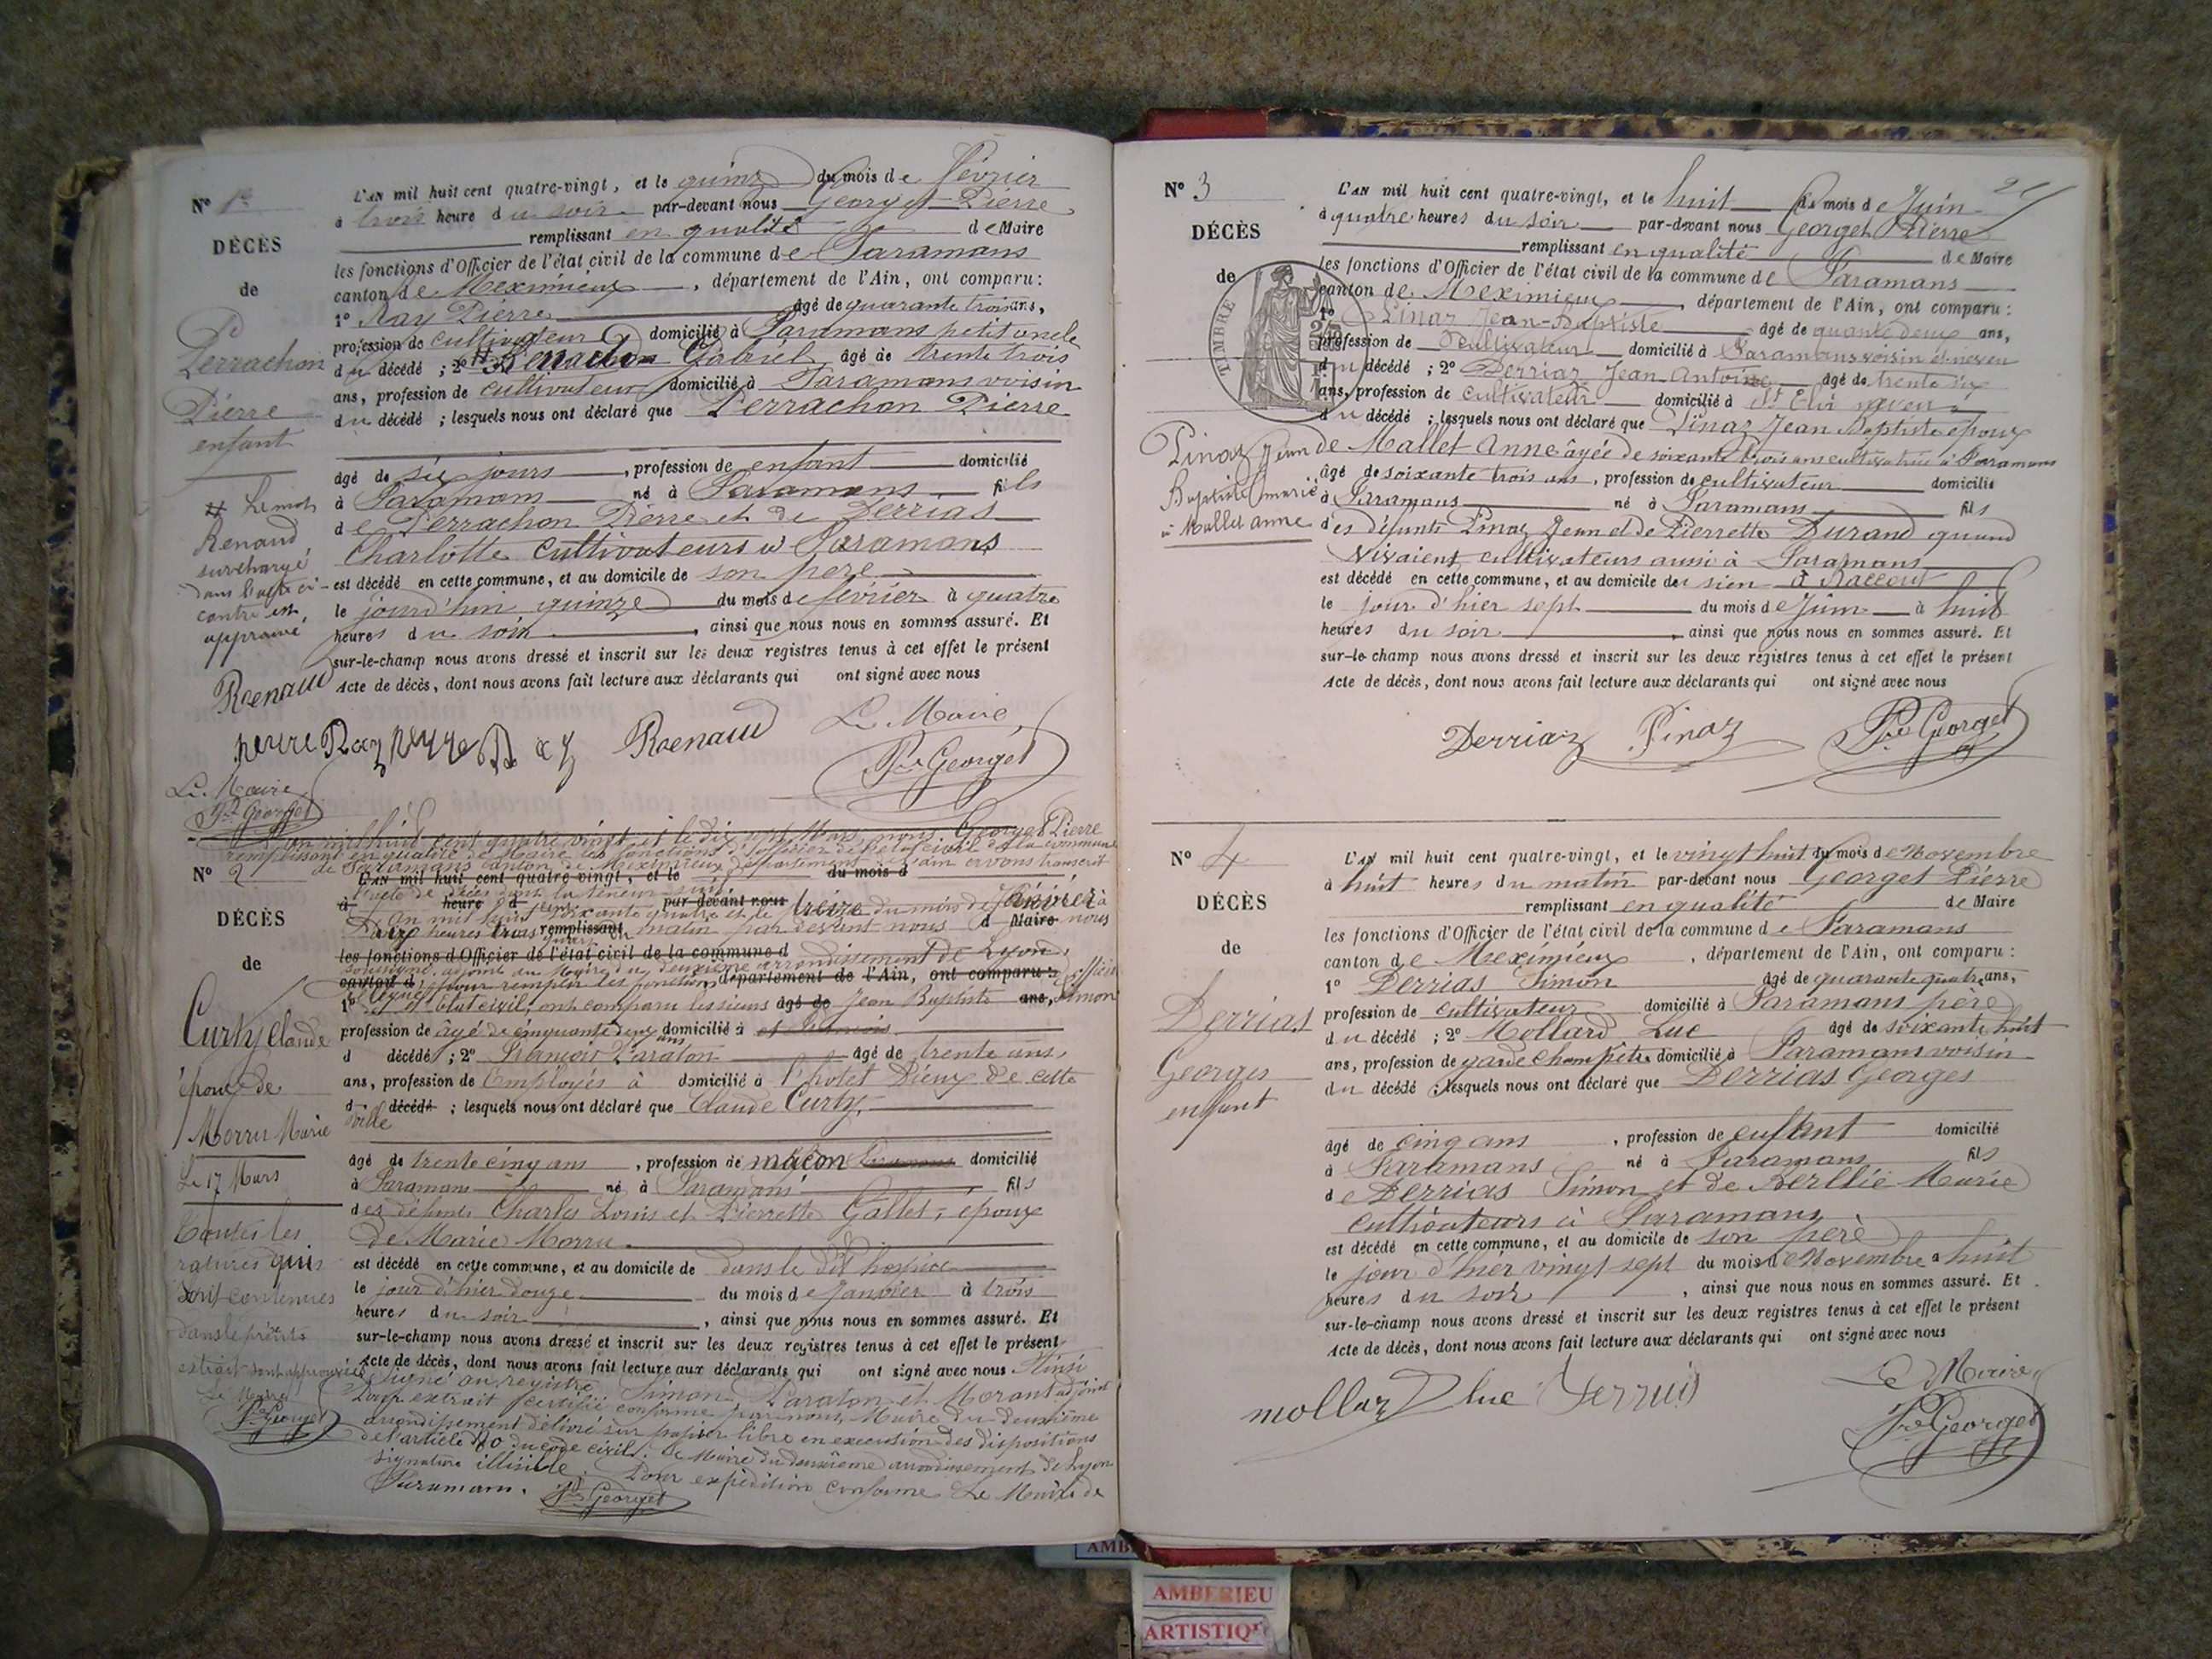 N° 1er
DÉCÈS
de
Perrachon
Pierre
enfant
# Le mot
Renaud
surchargé
dans l'acte ci-
contre est
approuvé
Renaud
Le Maire
Pre Georget
L'AN mil huit cent quatre-vingt, et le quinze du mois de Février
à trois heure du soir par-devant nous Georget Pierre
remplissant en qualité de Maire
les fonctions d'Officier de l'état civil de la commune de Faramans
canton de Meximieux, département de l'Ain, ont comparu:
1° Ray Pierre âgé de quarante trois ans,
profession de cultivateur domicilié à Faramans petit oncle
du décédé ; 2° # Renaud Gabriel âgé de trente trois
ans, profession de cultivateur domicilié à Faramans voisin
du décédé ; lesquels nous ont déclaré que Perrachon Pierre
âgé de six jours, profession de enfant domicilié
à Faramans né à Faramans fils
de Perrachon Pierre et de Derrias
Charlotte cultivateurs à Faramans
est décédé en cette commune, et au domicile de son père
le jourd'hui quinze du mois de février à quatre
heures du soir, ainsi que nous nous en sommes assuré. Et
sur-le-champ nous avons dressé et inscrit sur les deux registres tenus à cet effet le présent
Acte de décès, dont nous avons fait lecture aux déclarants qui ont signé avec nous
Renaud Le Maire
Pre Georget
N° 2
DÉCÈS
de
Curty Claude
époux de
Morru Marie
Le 17 Mars
Toutes les
ratures qui
sont contenues
dans le présent
extrait sont approuvées
Le Maire
Pre Georget
L'an mil huit cent quatre vingt et le dix sept Mars nous Georget Pierre
remplissant en qualité de Maire les fonctions d'officier de l'état civil de la commune
de Faramans canton de Meximieux département de l'ain avons transcrit
L'AN mil huit cent quatre-vingt, et le du mois d
l'acte de décès dont la teneur suit
à heure d par-devant nous
L'An mil huit cent soixante quatre et le treize du mois de Janvier à
remplissant d Maire
dix heures trois quart du matin par devant nous
les fonctions d'Officier de l'état civil de la commune d
soussigné adjoint au Maire du deuxième arrondissement de Lyon,
canton d département de l'Ain, ont comparu :
délégué pour remplir les fonctions d'officier
1° de l'Etat civil, ont comparu les sieurs âgé de Jean Baptiste ans, Simon
profession de âgé de cinquante deux ans domicilié à
d décédé ; 2° François Paraton âgé de trente ans,
ans, profession de Employés à domicilié à l'hotel Dieu de cette
d décédé ; lesquels nous ont déclaré que Claude Curty,
ville
âgé de trente cinq ans, profession de maçon domicilié
à Faramans né à Faramans fils
des défunts Charles Louis et Pierrette Gallet, époux
de Marie Morru
est décédé en cette commune, et au domicile de dans le dit hospice
le jour d'hier douze du mois de Janvier à trois
heures du soir, ainsi que nous nous en sommes assuré. Et
sur-le-champ nous avons dressé et inscrit sur les deux registres tenus à cet effet le présent
Acte de décès, dont nous avons fait lecture aux déclarants qui ont signé avec nous Ainsi
signé au registre Simon Paraton et Morant adjoint
Pour extrait certifié conforme par nous, Maire du deuxième
arrondissement délivré sur papier libre en exécution des dispositions
de l'article 80 du code civil. Le Maire du deuxième arrondissement de Lyon
Signature illisible. Pour expédition conforme Le Maire de
Faramans. Pre Georget
N° 3
DÉCÈS
de
TIMBRE
Pinaz Jean
Baptiste marié
à Mallet Anne
L'AN mil huit cent quatre-vingt, et le huit du mois de Juin
à quatre heures du soir par-devant nous Georget Pierre
remplissant en qualité de Maire
les fonctions d'Officier de l'état civil de la commune de Faramans
canton de Meximieux, département de l'Ain, ont comparu :
1° Pinaz Jean-Baptiste âgé de quarante deux ans,
profession de Cultivateur domicilié à Faramans voisin et neveu
du décédé ; 2° Derriaz Jean Antoine âgé de trente six
ans, profession de Cultivateur domicilié à St Eloi neveu
du décédé ; lesquels nous ont déclaré que Pinaz Jean Baptiste époux
de Mallet Anne âgée de soixante trois ans cultivatrice à Faramans
âgé de soixante trois ans, profession de cultivateur domicilié
à Faramans né à Faramans fils
des défunts Pinaz Jean et de Pierrette Durand quand
vivaient cultivateurs aussi à Faramans
est décédé en cette commune, et au domicile du sien
le jour d'hier sept du mois de Juin à huit
heures du soir, ainsi que nous nous en sommes assuré. Et
sur-le-champ nous avons dressé et inscrit sur les deux registres tenus à cet effet le présent
Acte de décès, dont nous avons fait lecture aux déclarants qui ont signé avec nous
Derriaz Pinaz Pre Georget
N° 4
DÉCÈS
de
Derrias
Georges
enfant
L'AN mil huit cent quatre-vingt, et le vingt huit du mois de Novembre
à huit heures du matin par-devant nous Georget Pierre
remplissant en qualité de Maire
les fonctions d'Officier de l'état civil de la commune de Faramans
canton de Meximieux, département de l'Ain, ont comparu :
1° Derrias Simon âgé de quarante quatre ans,
profession de cultivateur domicilié à Faramans père
du décédé ; 2° Mollard Luc âgé de soixante huit
ans, profession de garde champêtre domicilié à Faramans voisin
du décédé ; lesquels nous ont déclaré que Derrias Georges
âgé de cinq ans, profession de enfant domicilié
à Faramans né à Faramans fils
de Derrias Simon et de Berllié Marie
cultivateurs à Faramans
est décédé en cette commune, et au domicile de son père
le jour d'hier vingt sept du mois de Novembre à huit
heures du soir, ainsi que nous nous en sommes assuré. Et
sur-le-champ nous avons dressé et inscrit sur les deux registres tenus à cet effet le présent
Acte de décès, dont nous avons fait lecture aux déclarants qui ont signé avec nous
mollard luc Derrias Le Maire
Pre Georget
AMBERIEU
ARTISTIQUE